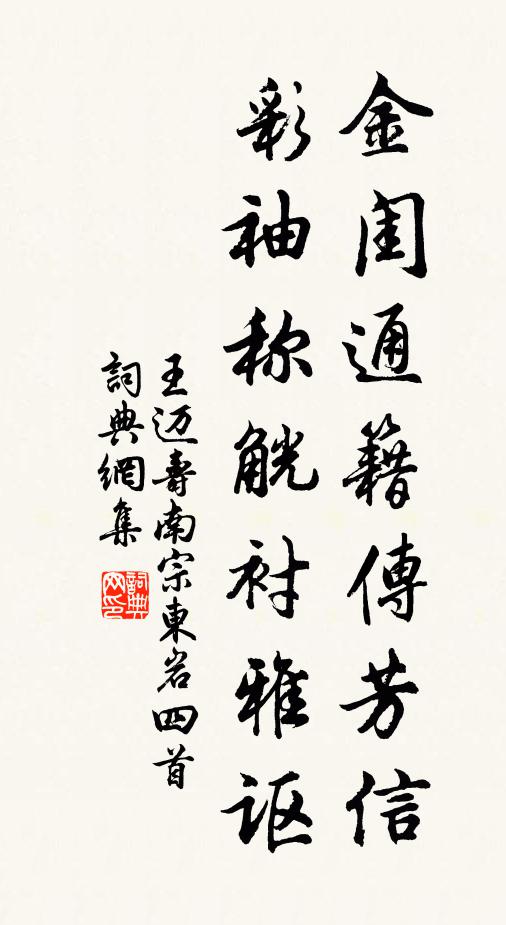 金闺通籍傳芳信
彩袖称觥衬雅讴
王迈壽南宗東岩四首
詞典網集
詞典网印